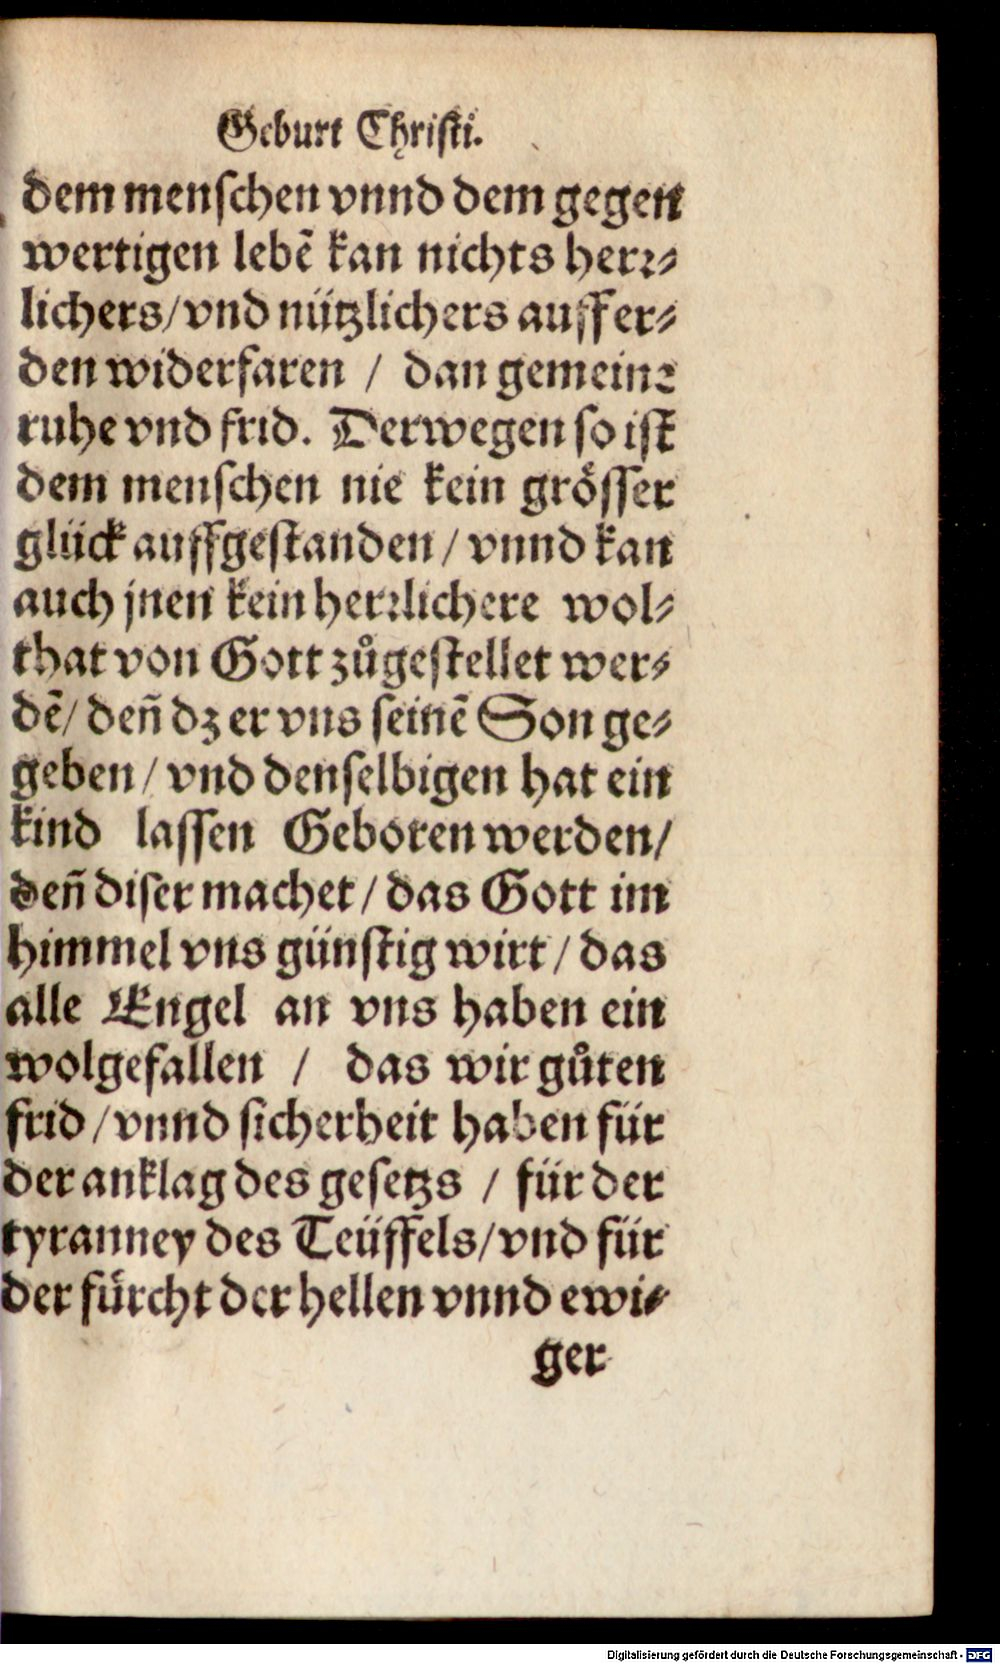 Geburt Christi.
dem menschen vnnd dem gegen
wertigen lebē kan nichts herr⸗
lichers/vnd nützlichers auff er⸗
den widerfaren / dan gemeine
ruhe vnd frid. Derwegen so ist
dem menschen nie kein grösser
glück auffgestanden/ vnnd kan
auch jnen kein herrlichere wol⸗
that von Gott zůgestellet wer⸗
dē/ deñ dz er vns seinē Son ge⸗
geben/ vnd denselbigen hat ein
kind lassen Geboren werden/
deñ diser machet/ das Gott im
himmel vns günstig wirt/ das
alle Engel an vns haben ein
wolgefallen / das wir gůten
frid/vnnd sicherheit haben für
der anklag des gesetzs / für der
tyranney des Teüffels/vnd für
der fürcht der hellen vnnd ewi⸗
ger
Digitalisierung gefördert durch die Deutsche Forschungsgemeinschaft - DFG